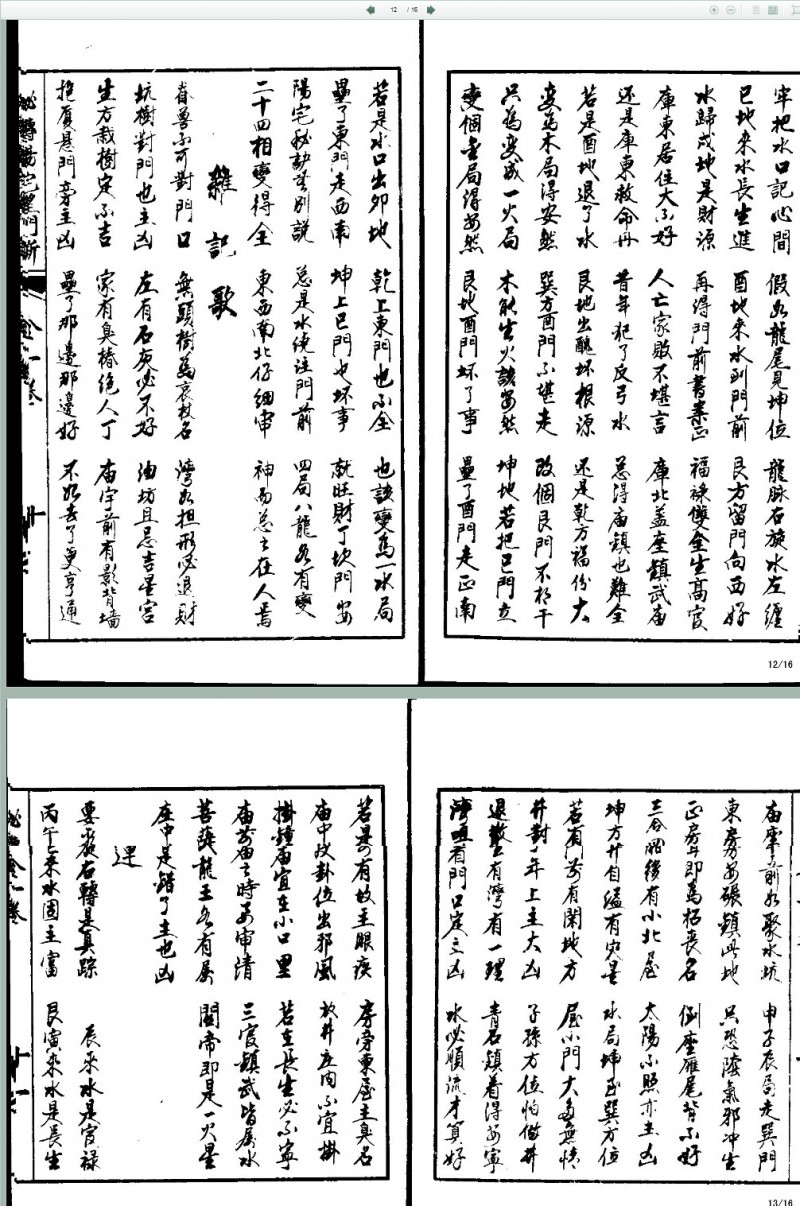 12 / 16
牢把水口記心間 假如龍尾見坤位 龍脉右旋水左纏
巳地來水長生進 酉地來水到門前 艮方留門向西好
水歸戌地是財源 再得門前書案正 福祿雙全生高官
庫東居住大不好 人亡家敗不堪言 庫北蓋座鎮武庙
还是庫東救命丹 昔年犯了反弓水 总得庙鎮也難全
若是酉地退了水 艮地出醜坏根源 还是乾方福份大
变為木局得安然 巽方酉門不堪走 改個艮門不相干
只為变成一火局 木能生火該安然 坤地若把巳門立
变個金局得安然 艮地酉門坏了事 壘了酉門走正南
若是水口出卯地 乾上東門也不全 也該变為一水局
壘了東門走西南 坤上巳門也坏事 就旺財丁坎門安
陽宅秘訣莫別說 总是水繞注門前 四局八龍各有变
二十四相变得全 東西南北仔細审 神而总之在人焉
雜記歌
春兽不可對門口 無頭樹為哀杖名 灣如担形必退財
坑樹對門也主凶 左有石灰必不好 油坊且忌吉星宫
生方栽樹定不吉 家有臭椿绝人丁 庙宇前有影背墙
抱厦悬門旁主凶 壘了那邊那邊好 不如去了更亨通
12/16
庙摩前如聚水坑 申子辰局走巽門
東房安碾鎮此地 只恐陰氣邪冲生
正房丹即為拓喪名 倒座雁尾背不好
三合昭後有小北屋 太陽不照亦主凶
坤方井自缢有灾星 水局坤至巽方位
若有前有閑地方 屋小門大多無情
井對年上主大凶 子孫方位怕做井
退數有灣有一理 青石鎮着得安寧
灣頭有門口定主凶 水必順流才算好
若是有故主眼疾 房旁東屋主臭名
庙中坟卦位出邪風 放井在内不宜掛
掛鐘庙宜在小口里 若在長生必不寧
庙前庙之時要审清 三官鎮武皆属水
菩薩龍王各有属 關帝即是一火星
座中是錯了主也凶
逆
要裝右轉是真踪 辰來水是官祿
丙午來水固主富 艮寅來水是長生
13/16